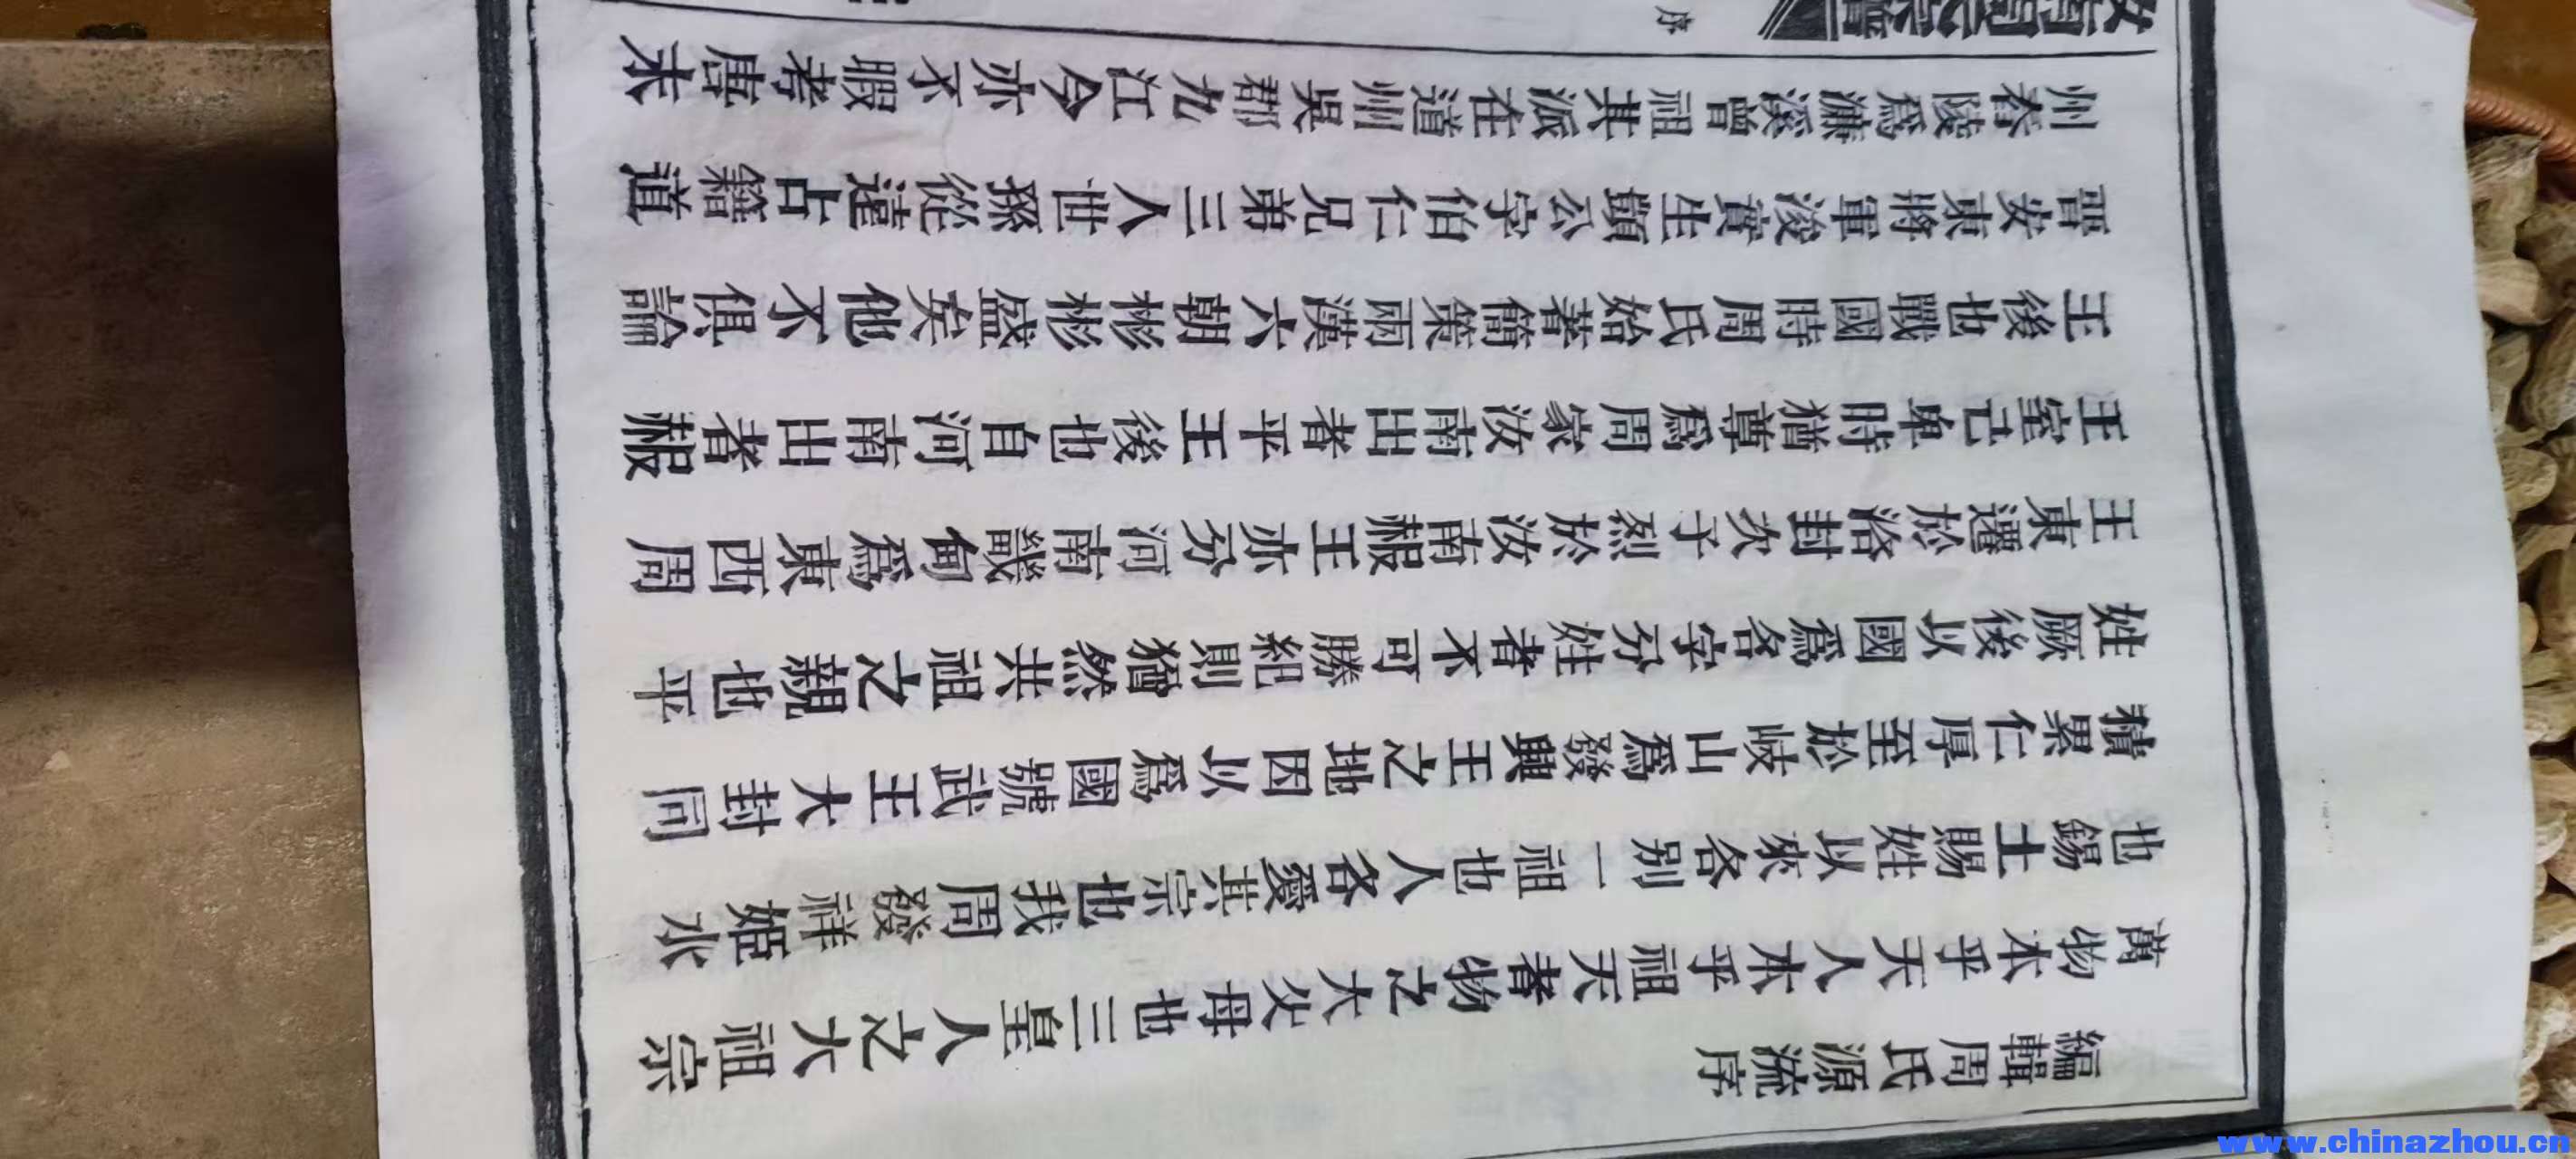 編輯周氏源流序
萬物本乎天人本乎祖天者物之大父母也三皇人之大祖宗
也錫土賜姓以來各别一祖也人各愛其宗也我周發祥姬水
積累仁厚至於岐山爲發興王之地因以爲國號武王大封同
姓厥後以國爲各字分姓者不可勝紀則猶然共祖之親也平
王東遷於洛封次子烈於汝南赧王亦分河南畿甸爲東西周
王室已卑時猶尊爲周家汝南出者平王後也自河南出者赧
王後也戰國時周氏始著簡策兩漢六朝彬彬盛矣他不俱論
晋安東將軍浚實生顗公字伯仁兄弟三人世孫從遠占籍道
州舂陵爲濂溪曾祖其派在道州吳郡九江今亦不暇考唐末
汝南周氏宗譜
序
www.chinazhou.cn